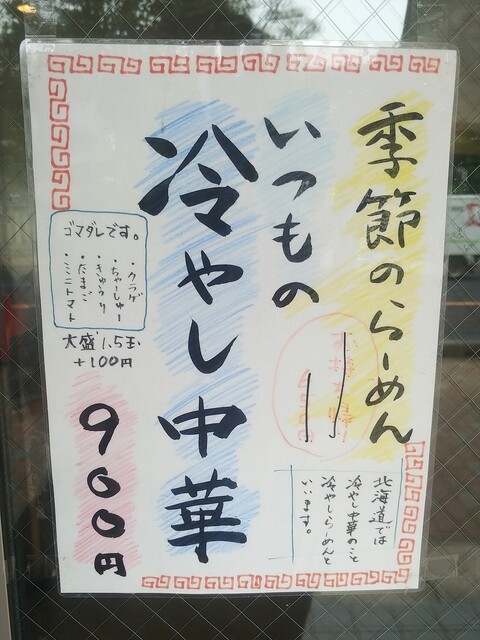 季節のらーめん
いつもの
冷やし中華
ゴマダレです。
・クラゲ
・ちゃーしゅー
・きゅうり
・たまご
・ミニトマト
大盛 1.5玉
+100円
900円
北海道では
冷やし中華のこと
冷やしらーめんと
いいます。